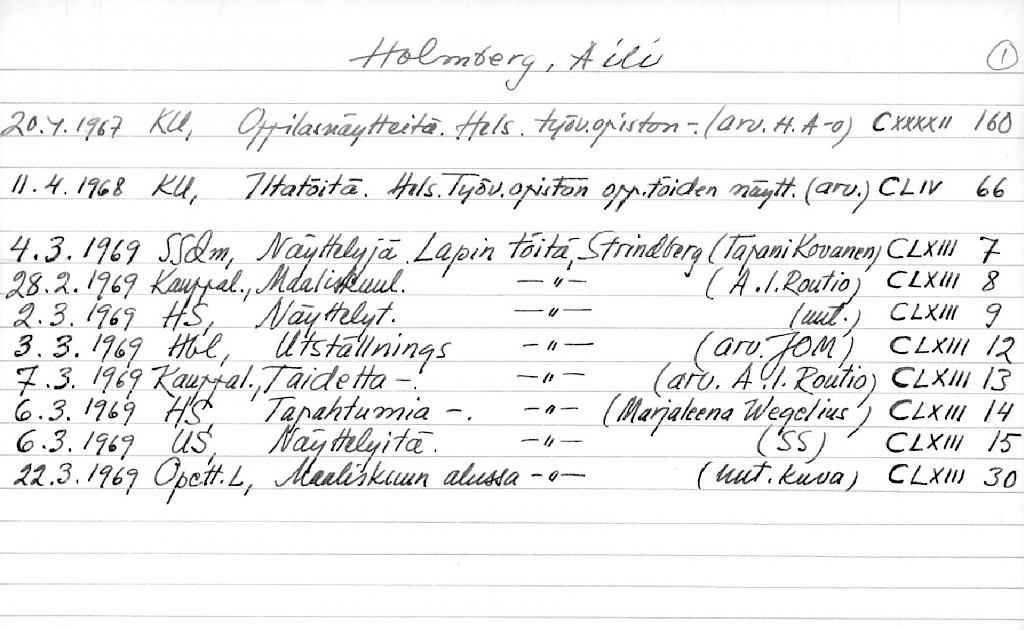 Holmberg, Aili ①
20.4.1967 KU, Oppilasnäytteitä. Hels. työv.opiston -. (arv. H. A-o) CXXXXII 160
11.4.1968 KU, Iltatöitä. Hels. Työv.opiston opp.töiden näytt. (arv.) CLIV 66
4.3.1969 SSdm, Näyttelyjä. Lapin töitä, Strindberg (Tapani Kovanen) CLXIII 7
28.2.1969 Kauppal., Maaliskuul. —"— (A.I. Routio) CLXIII 8
2.3.1969 HS, Näyttelyt. —"— (uut.) CLXIII 9
3.3.1969 Hbl, Utställnings —"— (arv. JOM) CLXIII 12
7.3.1969 Kauppal., Taidetta -. —"— (arv. A.I. Routio) CLXIII 13
6.3.1969 HS, Tapahtumia -. —"— (Marjaleena Wegelius) CLXIII 14
6.3.1969 US, Näyttelyitä. —"— (SS) CLXIII 15
22.3.1969 Opett.L, Maaliskuun alussa —"— (uut. kuva) CLXIII 30